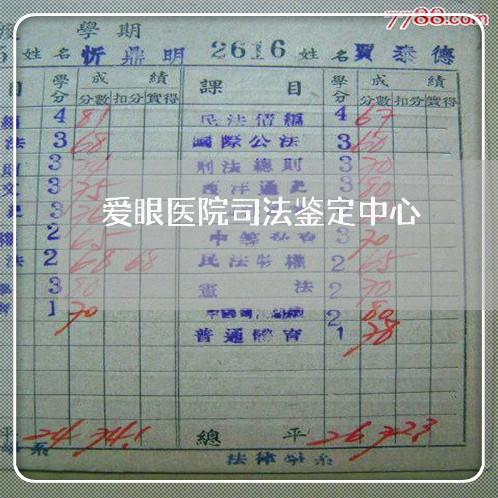 7788.com
學期
姓名 忻鼎明 2616 姓名 賈泰德
目 學分 成績 課目 學分 成績
分數 扣分 實得 分數 扣分 實得
4 81 民法債編 4 67
法 3 68 國際公法 3 60
3 刑法總則 3 70
3 75 西洋通史 3 80
愛眼医院司法鉴定中心
2 65 3 70
法 2 68 68 民法物權 2 65
3 80 憲法 2 70
1 70 2 80
普通體育 1 78
平 24 74.1 總平 26 72.3
系 法律學系